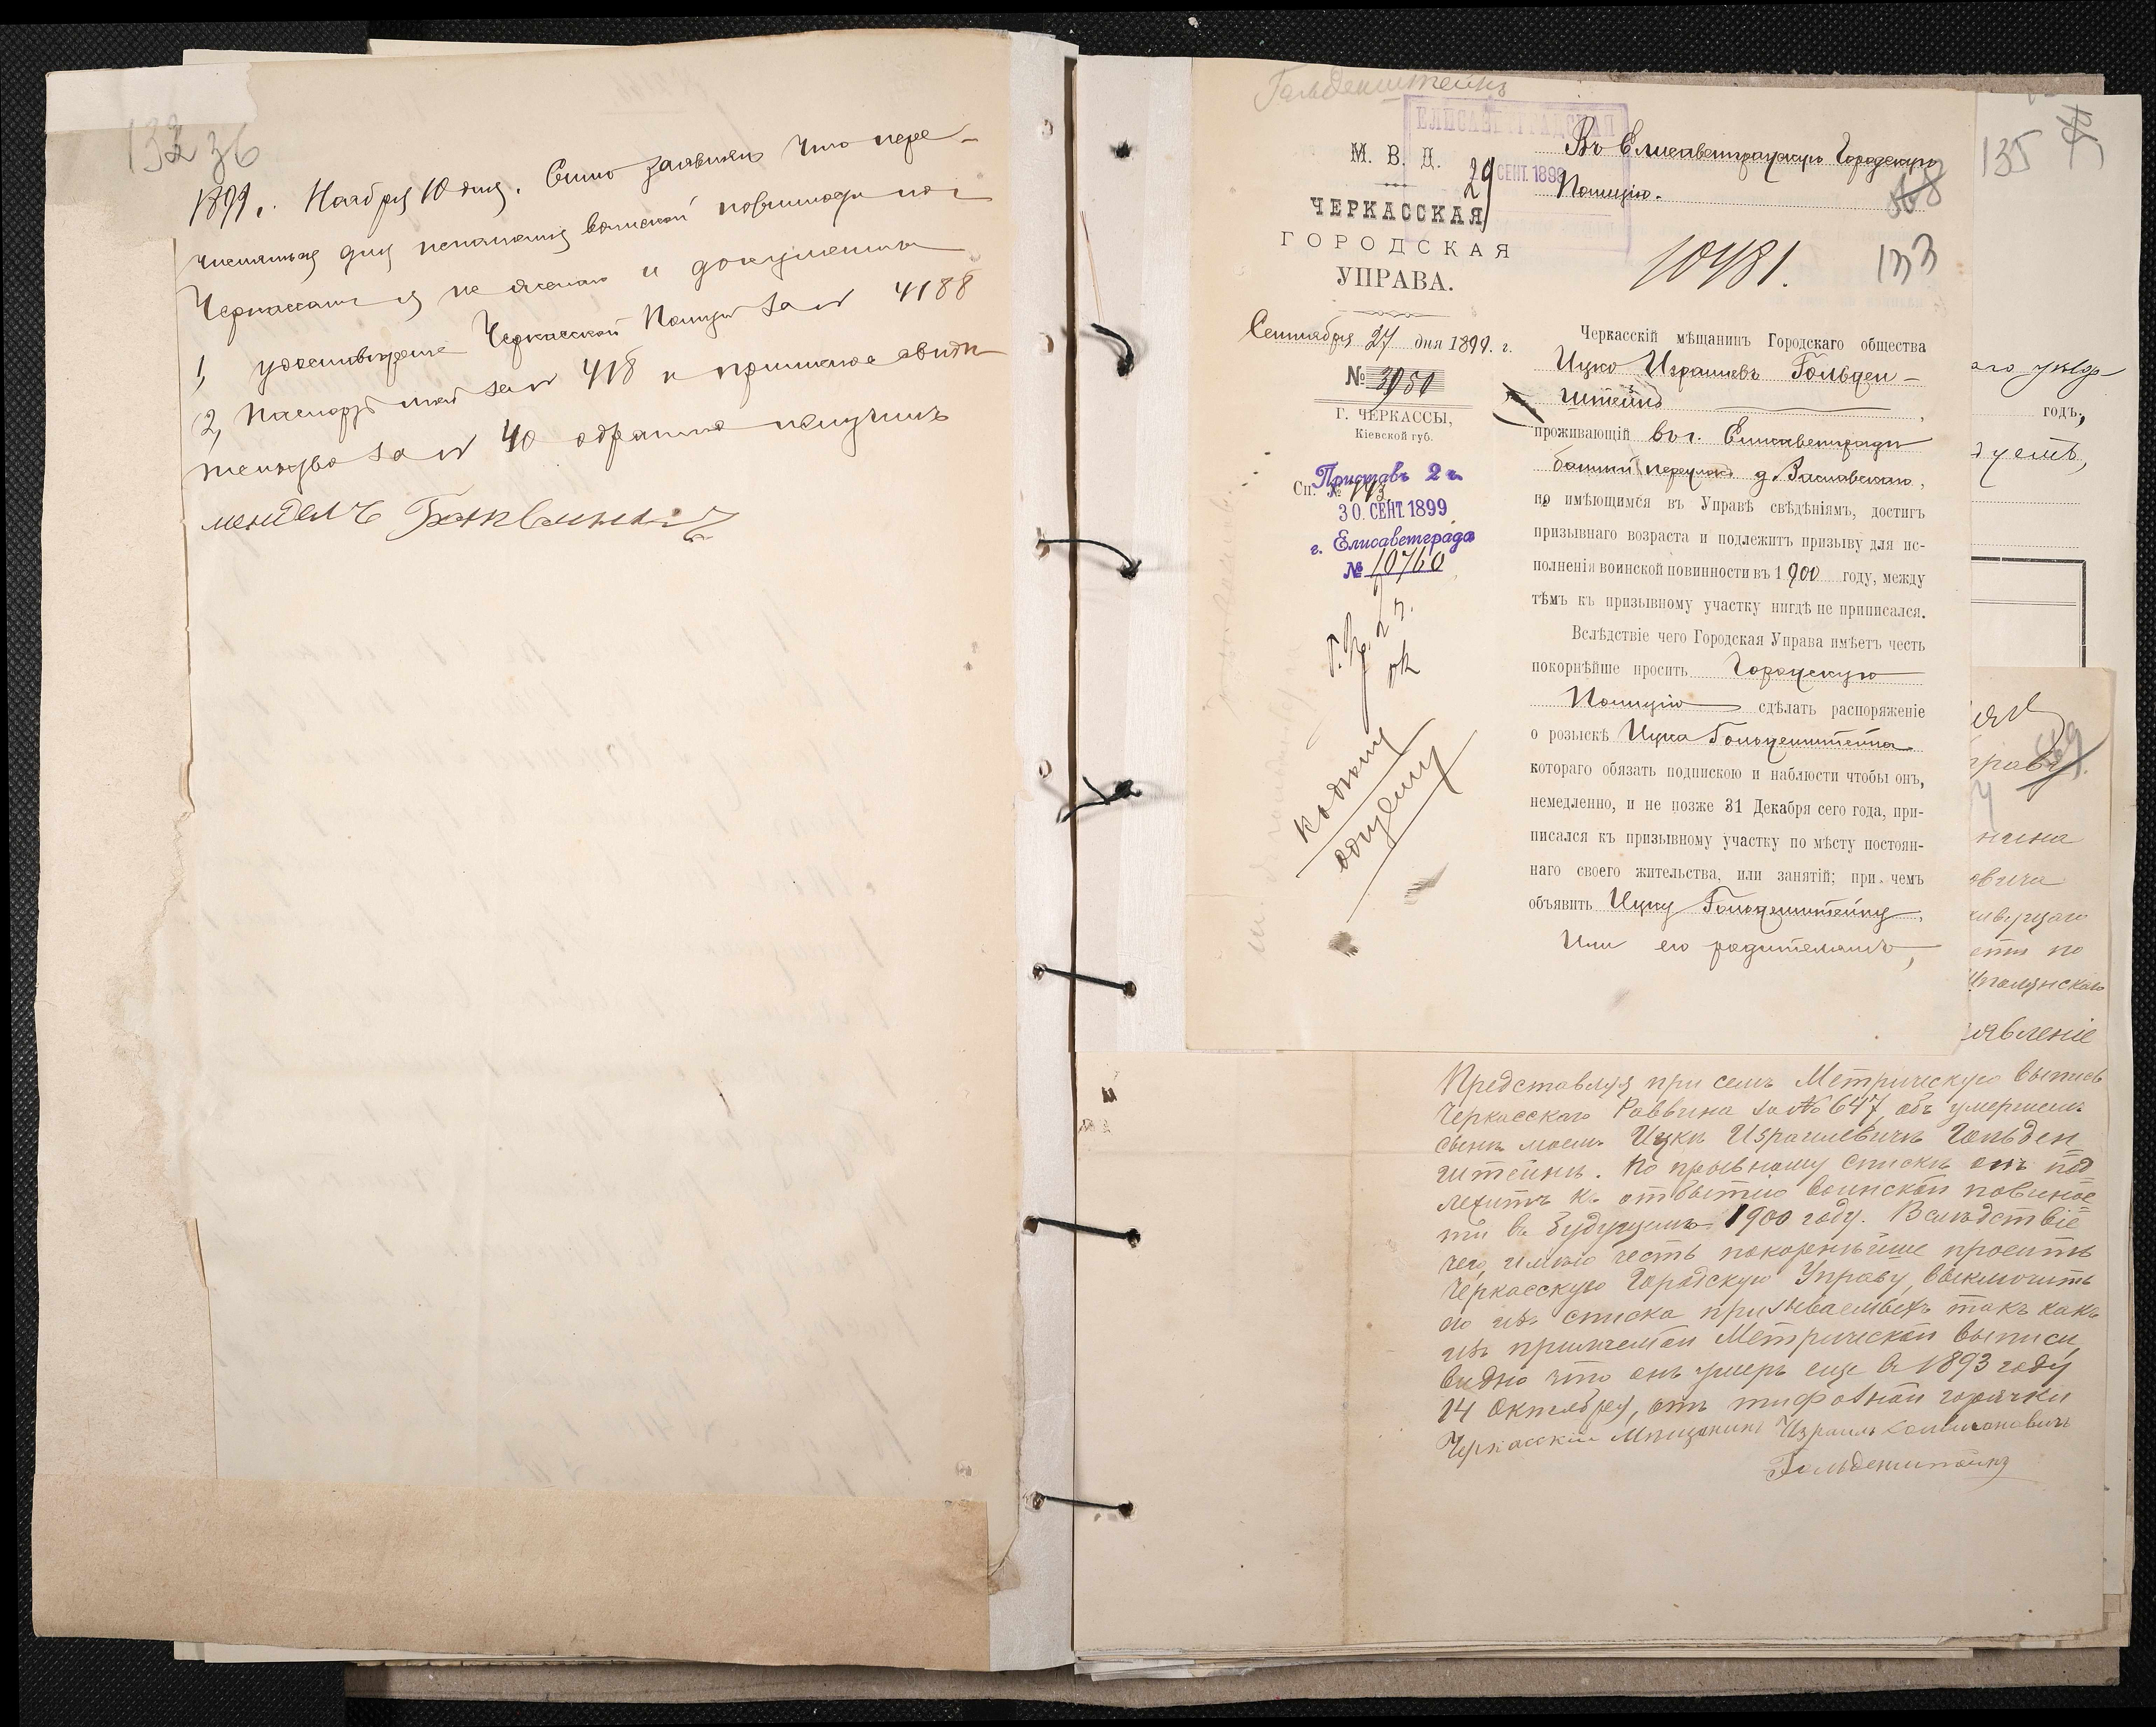 132 36
1899 г. Ноября 10 дня. Симъ заявляю что пере-
числяться для исполненія воинской повинности по г.
Черкассамъ я не желаю и документы
1, удостовѣреніе Черкасской Полиціи за № 4188
2, Паспортъ мой за № 418 и приписное свидѣ-
тельство за № 40 обратно получилъ
Мендель
Гольденштейнъ
ЕЛИСАВЕТГРАДСКАЯ
29 СЕНТ. 1899
М. В. Д.
ЧЕРКАССКАЯ
ГОРОДСКАЯ
УПРАВА.
Сентября 27 дня 1899. г.
№ 3950
Г. ЧЕРКАССЫ,
Кіевской губ.
Сп. №
Приставъ 2 ч.
30. СЕНТ. 1899
г. Елисаветграда
№ 10760
къ общему
Въ Елисаветградскую Городскую
Полицію.
10481.
133
Черкасскій мѣщанинъ Городскаго общества
Ицко Израилевъ Гольден-
штейнъ,
проживающій въ г. Елисаветградѣ
переулокъ д. Заславскаго,
по имѣющимся въ Управѣ свѣдѣніямъ, достигъ
призывнаго возраста и подлежитъ призыву для ис-
полненія воинской повинности въ 1900 году, между
тѣмъ къ призывному участку нигдѣ не приписался.
Вслѣдствіе чего Городская Управа имѣетъ честь
покорнѣйше просить Городскую
Полицію сдѣлать распоряженіе
о розыскѣ Ицка Гольденштейна
котораго обязать подпискою и наблюсти чтобы онъ,
немедленно, и не позже 31 Декабря сего года, при-
писался къ призывному участку по мѣсту постоян-
наго своего жительства, или занятій; при чемъ
объявить Ицку Гольденштейну,
или его родителямъ,
135
го уѣзда
годъ,
69
нина
овича
сти по
Шполянскаго
явленіе
Представляя при семъ Метрическую выпись
Черкасскаго Раввина за № 647, объ умершемъ
сынѣ моемъ Ицкѣ Израилевичѣ Гольден=
штейнъ. По прывному списку онъ под
лежитъ къ отбытію воинской повинос=
ти въ будущемъ 1900 году. Вслѣдствіе
чего, имѣю честь покорнѣйше просить
Черкасскую Городскую Управу, выключить
его изъ списка призываемыхъ такъ какъ
изъ прилагемой Метрической выписи
видно что онъ умеръ еще въ 1893 году
14 Октября, отъ тифозной горячки
Черкасскій Мѣщанинъ Израиль
Гольденштейнъ